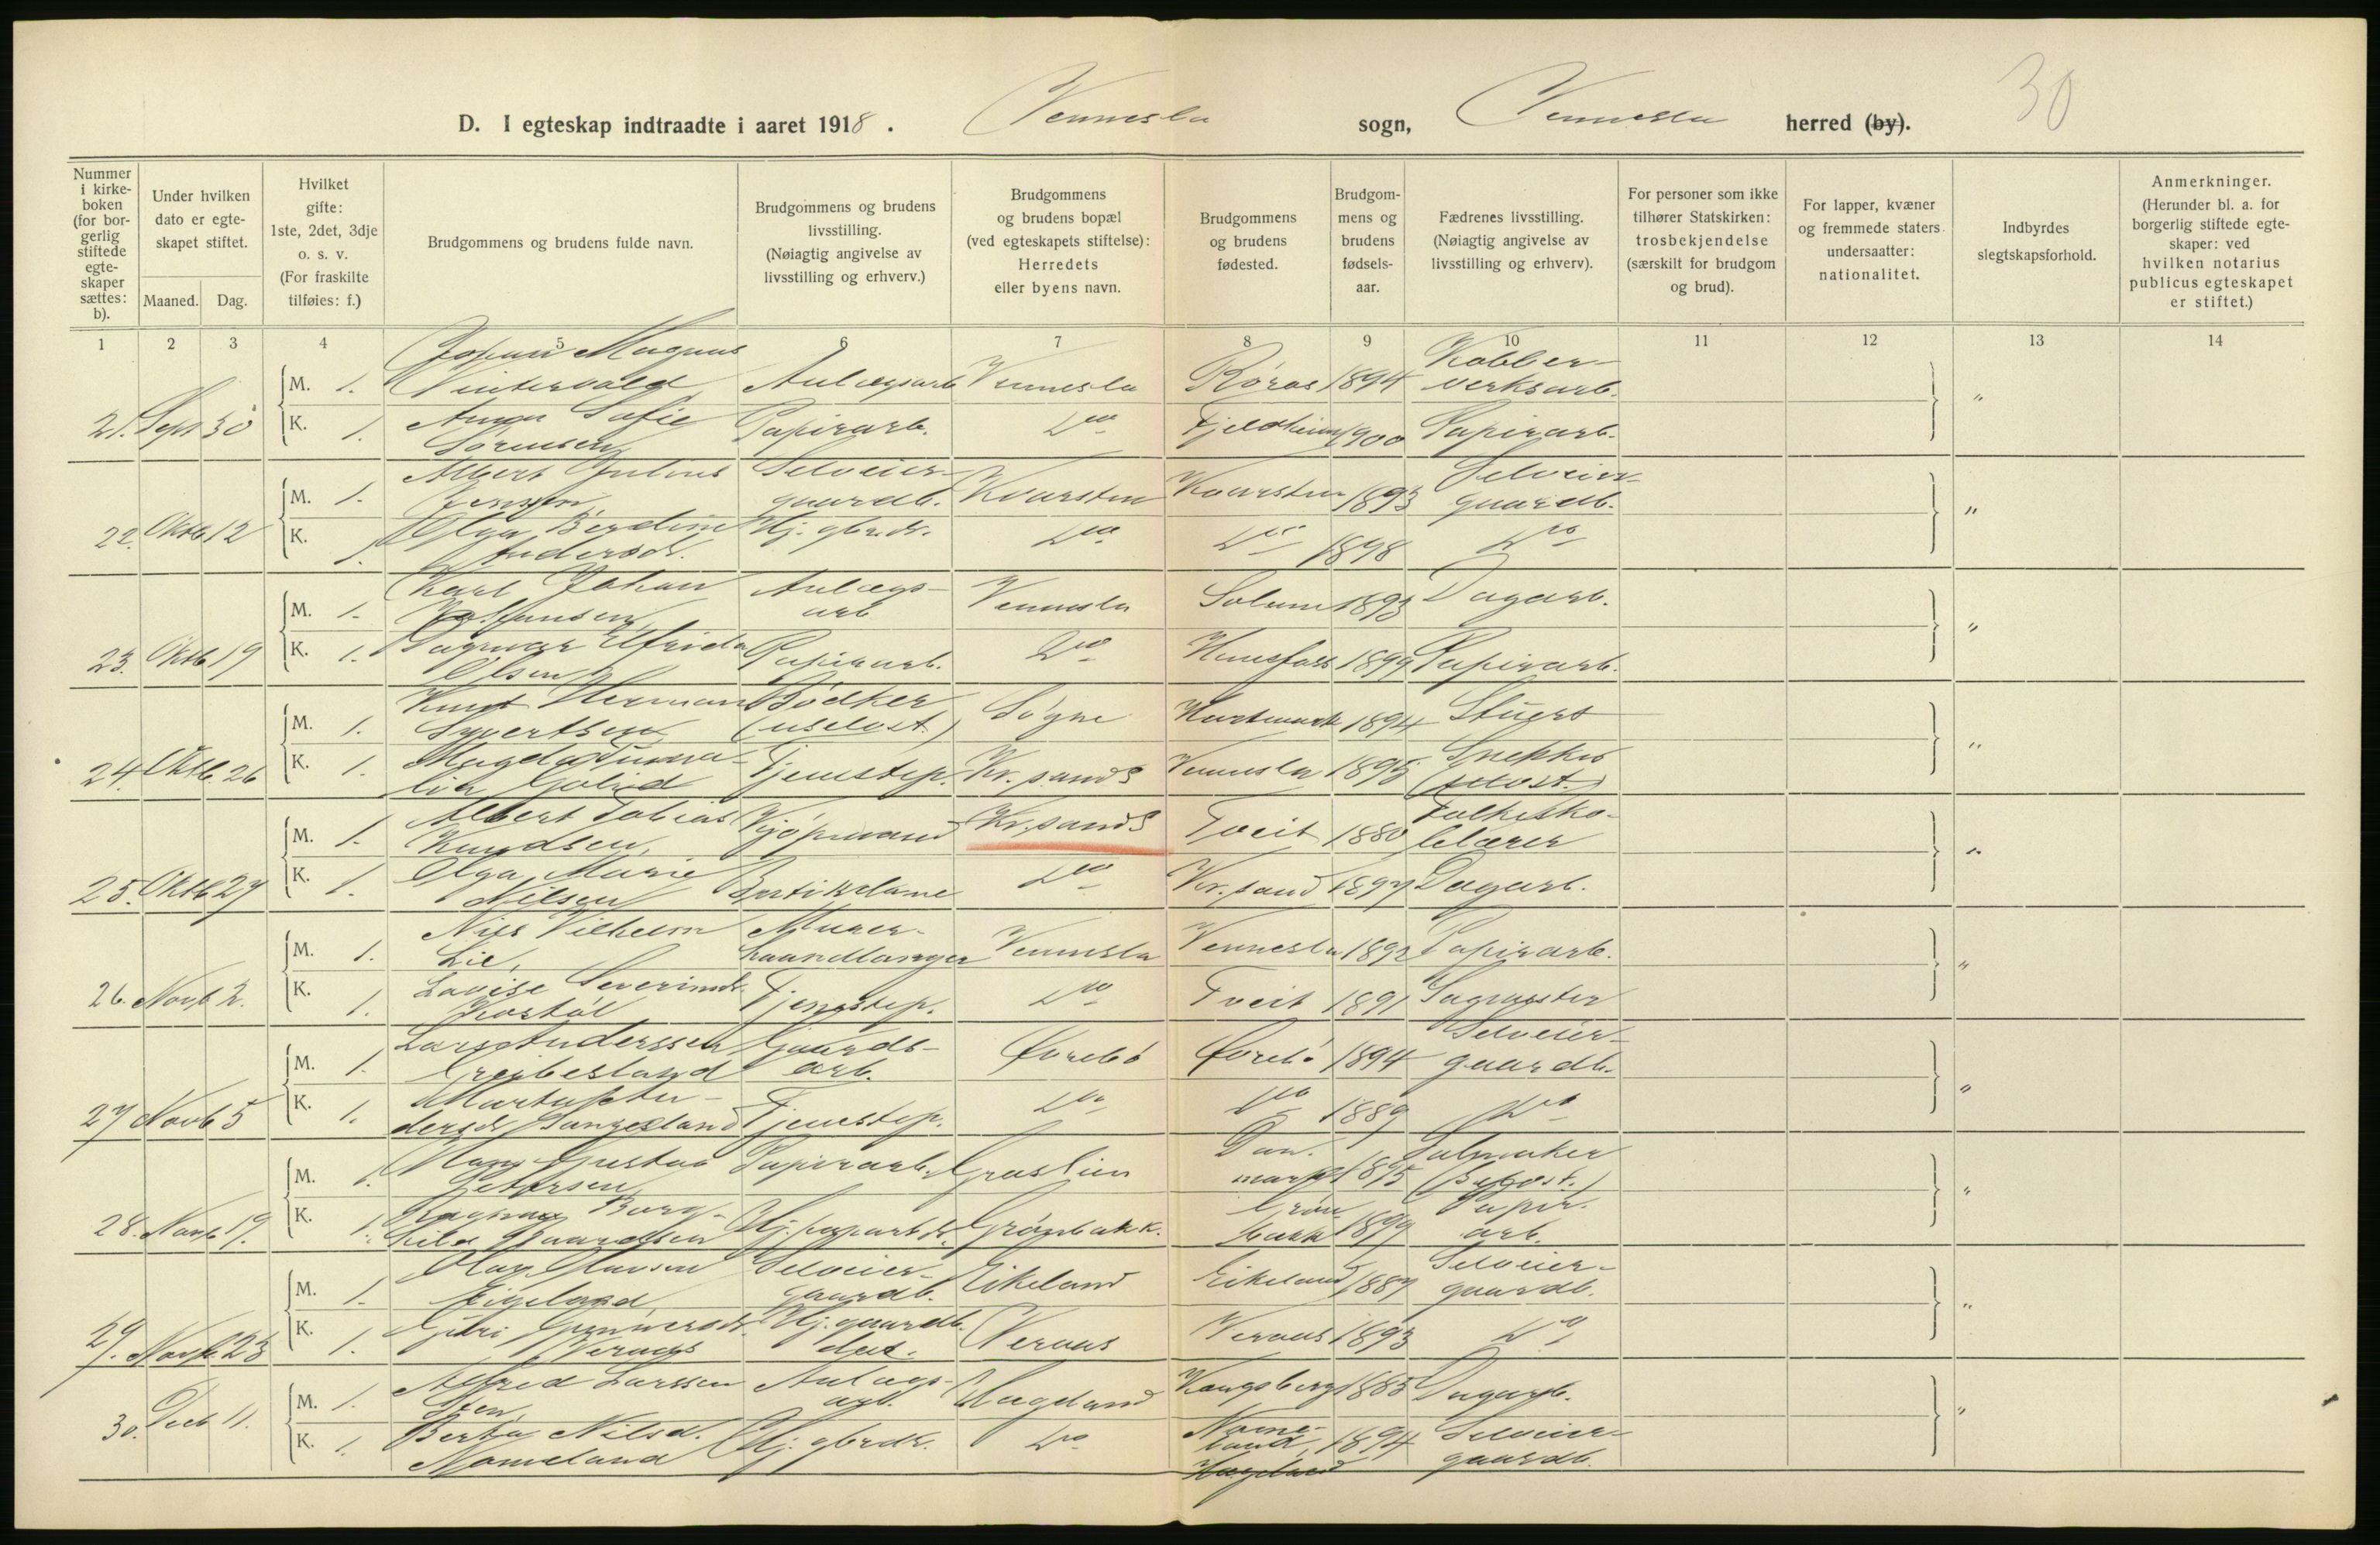 30
D. I egteskap indtraadte i aaret 1918. Vennesla sogn, Vennesla herred (by).
Nummer i kirkeboken (for borgerlig stiftede egteskaper sættes: b).
Under hvilken dato er egteskapet stiftet.
Maaned. Dag.
Hvilket gifte: 1ste, 2det, 3dje o. s. v. (For fraskilte tilføies: f.)
Brudgommens og brudens fulde navn.
Brudgommens og brudens livsstilling. (Nøiagtig angivelse av livsstilling og erhverv.)
Brudgommens og brudens bopæl (ved egteskapets stiftelse): Herredets eller byens navn.
Brudgommens og brudens fødested.
Brudgommens og brudens fødselsaar.
Fædrenes livsstilling. (Nøiagtig angivelse av livsstilling og erhverv).
For personer som ikke tilhører Statskirken: trosbekjendelse (særskilt for brudgom og brud).
For lapper, kvæner og fremmede staters undersaatter: nationalitet.
Indbyrdes slegtskapsforhold.
Anmerkninger. (Herunder bl. a. for borgerlig stiftede egteskaper: ved hvilken notarius publicus egteskapet er stiftet.)
1 2 3 4 5 6 7 8 9 10 11 12 13 14
21. Sept 30
M. 1. Johan Magnus Vintervold Anlægsarb Vennesla Röros 1894 Kobberverksarb. "
K. 1. Anna Sofie Sörensen Papirarb. Do Fjeldheim 1900 Papirarb.
22. Oktb 12
M. 1. Albert Julius Jensen, Selveiergaardb. Kvarsten Kvarsten 1893 Selveiergaardb. "
K. 1. Olga Berdine Andersd. Hj. gbr.dt. Do Do 1898 Do
23. Oktb 19
M. 1. Karl Johan Anlægsarb Vennesla Solum 1893 Dagarb. "
K. 1. Dagmar Elfrida Olsen Papirarb. Do Hunsfoss 1899 Papirarb.
24. Oktb. 26
M. 1. Knut Herman Syvertsen Bödker (uselvst.) Sögne Hartmark 1894 Stuert "
K. 1. Tjenestep. Kr.sand S Vennesla 1895 Snekker (selvst.)
25. Oktb 27
M. 1. Albert Tobias Knudsen, Kjöpmand Kr.sand S Tveit 1880 Folkeskolelærer "
K. 1. Olga Marie Nilsen Butikdame Do Kr.sand 1897 Dagarb.
26. Novb 2.
M. 1. Nils Vilhelm Lie, Murerhaandlanger Vennesla Vennesla 1892 Papirarb. "
K. 1. Lovise Severinsd. Tjenestep. Do Tveit 1891 Sagmester
27 Novb 5
M. 1. Lars Anderssen Greibesland Gaardsarb. Övrebö Övrebö 1894 Selveiergaardb. "
K. 1. Marta Pedersd. Tjenestep. Do Do 1889 Do
28. Novb 19.
M. 1. Gustav Petersen Papirarb. Graslien Danmark 1895 Salmaker (Selvst.) "
K. 1. Ragna Borghild Hj. paparb.dt. Grönbakk. Grönbakk 1899 Papirarb.
29. Novb 23
M. 1. Olav Eikeland, Selveiergaardb. Eikeland Eikeland 1887 Selveiergaardb. "
K. 1. Guri Gunnersd. Veraas Hj. gaardb. dat. Veraas Veraas 1893 Do
30. Decb 11.
M. 1. Alfred Larssen Anlægsarb. Hægeland Kongsberg 1885 Dagarb. "
K. 1. Berta Nilsd. Nomeland Hj. gbrdt. Do Nomeland, Hægeland 1894 Selveiergaardb.